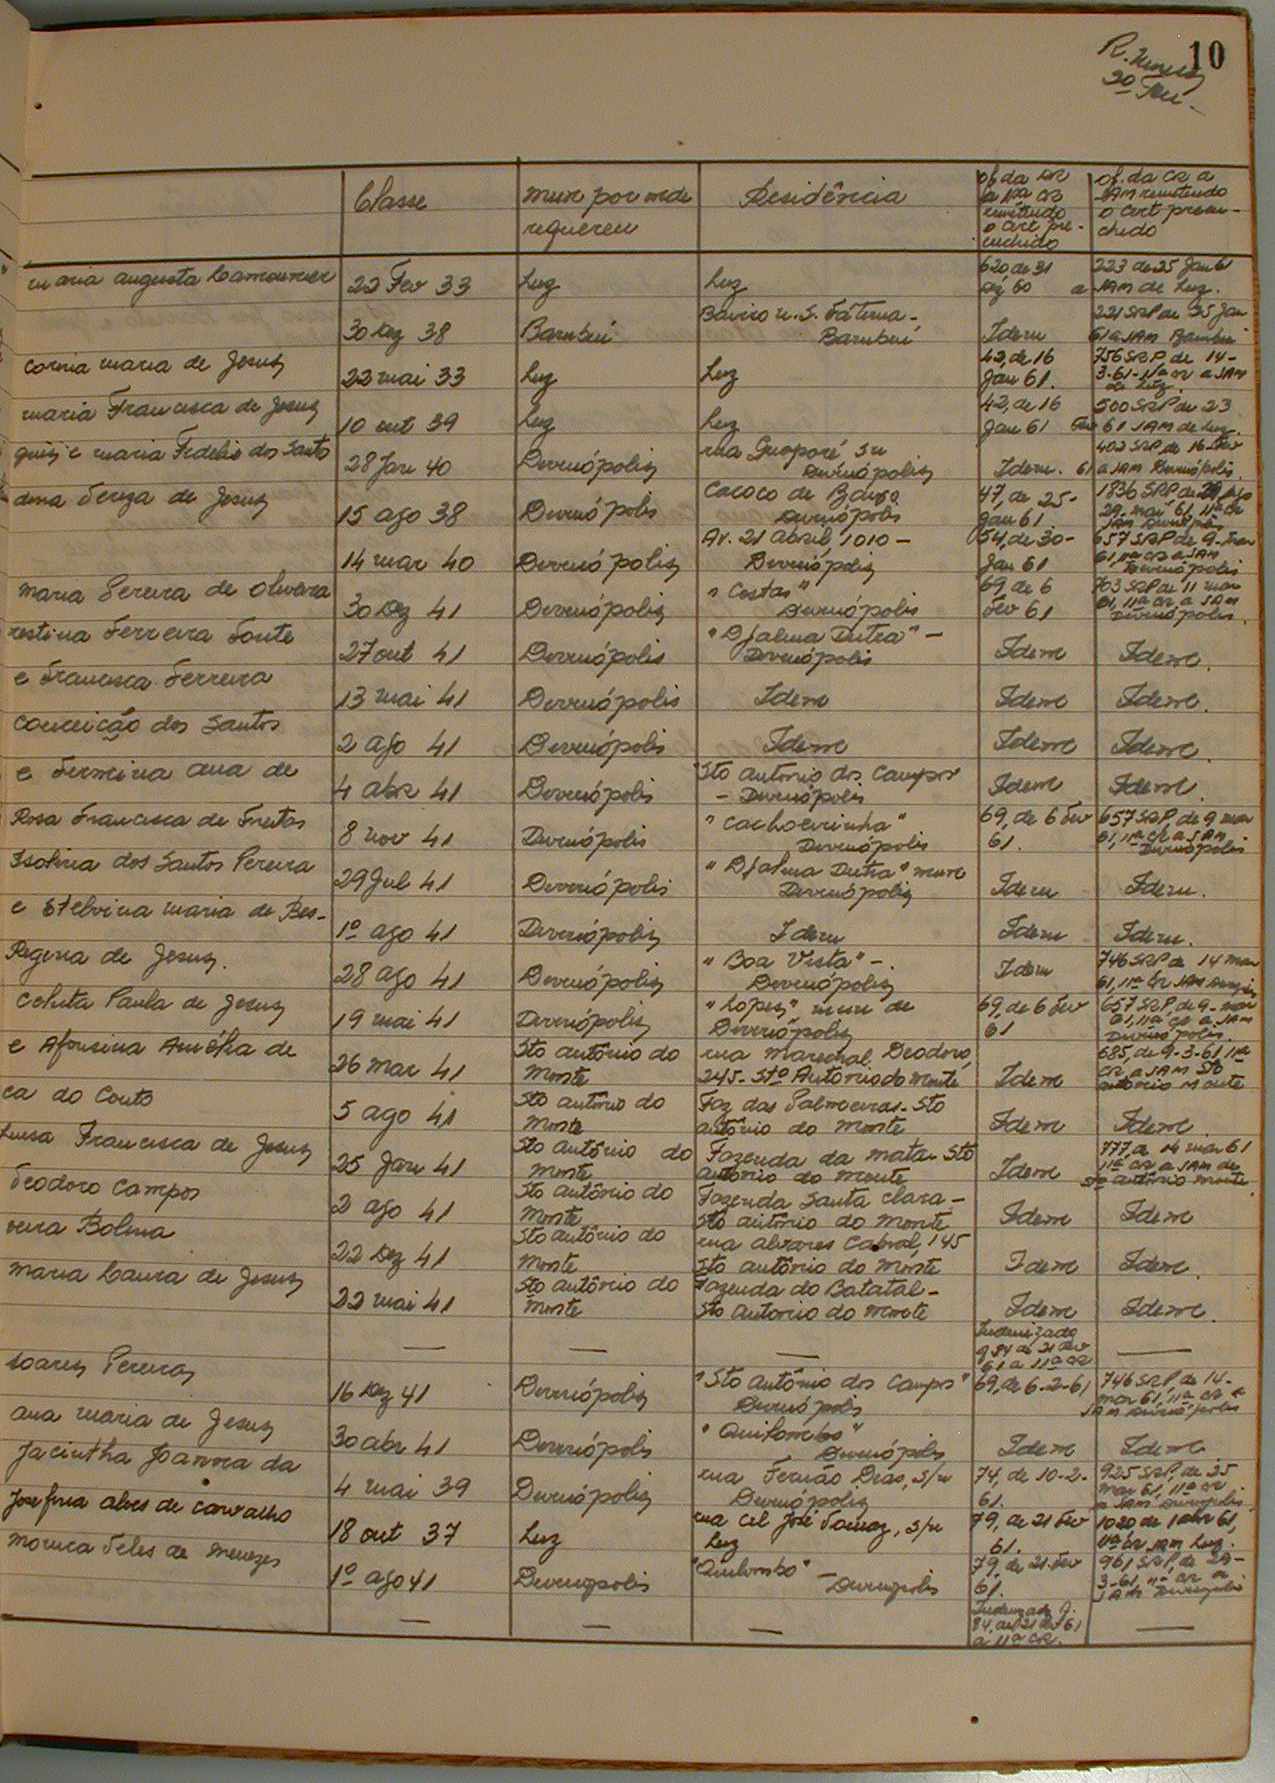 10
Classe
mun por onde
requereu
Residência
of da CR
remetendo
o cert pre-
enchido
of. da CR a
JAM remetendo
o cert preen-
chido
maria augusta Lamounier 22 Fev 33 Luz Luz 620 de 31 Dez 60 223 de 25 Jan 61 a JAM de Luz.
30 Dez 38 Bambuí Bairro n. S. Fátima - Bambuí Idem 221 SRP de 25 Jan 61 a JAM Bambuí
maria de Jesus 22 mai 33 Luz Luz 42, de 16 Jan 61. 756 SRP, de 14-3-61-11ª CR a JAM de Luz.
maria Francisca de Jesus 10 out 39 Luz Luz 42, de 16 Jan 61 500 SRP de 23 Fev 61 JAM de Luz.
e maria Fidelis dos Santos 28 Jan 40 Divinópolis rua Guaporé sn Divinópolis Idem. 402 SRP de 16 Fev 61 a JAM Divinópolis.
Tereza de Jesus 15 ago 38 Divinópolis Cacoco de Divinópolis 47, de 25-Jan 61 1836 SRP de 29 mai 61, 11ª CR JAM Divinópolis
14 mar 40 Divinópolis Av. 21 abril, 1010 - Divinópolis 54, de 30-Jan 61 657 SRP de 9-mar 61, 11ª CR a JAM Divinópolis
maria Pereira de Oliveira 30 Dez 41 Divinópolis "Costas" Divinópolis 69, de 6 Fev 61 703 SRP de 11 mar 61, 11ª CR a JAM Divinópolis.
Ferreira Fonte 27 out 41 Divinópolis "Djalma Dutra" - Divinópolis Idem Idem.
e Francisca Ferreira 13 mai 41 Divinópolis Idem Idem Idem.
Conceição dos Santos 2 ago 41 Divinópolis Idem Idem Idem.
e Firmina ana de 4 abr 41 Divinópolis "Sto antonio dos Campos" - Divinópolis Idem Idem.
Rosa Francisca de Freitas 8 nov 41 Divinópolis "Cachoeirinha" Divinópolis 69, de 6 Fev 61. 657 SRP, de 9 mar 61, 11ª CR a JAM Divinópolis
Isolina dos Santos Pereira 29 Jul 41 Divinópolis "Djalma Dutra" mun Divinópolis Idem Idem.
e Etelvina maria de Bes- 1º ago 41 Divinópolis Idem Idem Idem.
Regina de Jesus. 28 ago 41 Divinópolis "Boa Vista" - Divinópolis Idem 746 SRP, de 14 mar 61, 11ª CR JAM
Paula de Jesus 19 mai 41 Divinópolis "Lopes", mun de Divinópolis 69, de 6 Fev 61 657 SRP, de 9-mar 61, 11ª CR a JAM Divinópolis.
e Afonsina Amélia de 26 mar 41 Sto antônio do Monte rua Marechal Deodoro, 245-Stº Antônio do monte Idem 685, de 9-3-61 11ª CR a JAM Sto antônio Monte
ca do Couto 5 ago 41 Sto antônio do Monte Faz das Palmeiras-Sto antônio do Monte Idem Idem.
Luisa Francisca de Jesus 25 Jan 41 Sto antônio do Monte Fazenda da mata-Sto antônio do monte Idem 777, de 14 mar 61 11ª CR a JAM de Stº antônio monte
Teodoro Campos 2 ago 41 Sto antônio do Monte Fazenda Santa Clara - Sto antônio do Monte Idem Idem
Bolina 22 Dez 41 Sto antônio do Monte rua alvares Cabral, 145 Sto antônio do Monte Idem Idem.
maria Laura de Jesus 22 mai 41 Sto antônio do Monte Fazenda do Batatal - Sto antonio do monte Idem Idem.
— — — 84 de 21 Fev 61 a 11ª CR —
Soares Pereira 16 Dez 41 Divinópolis "Sto antônio dos Campos" Divinópolis 69, de 6-2-61 746 SRP, de 14-mar 61, 11ª CR a JAM Divinópolis
ana maria de Jesus 30 abr 41 Divinópolis "Quilombo" Divinópolis Idem Idem
Jacintha Joanna da 4 mai 39 Divinópolis rua Fernão Dias, s/n Divinópolis 74, de 10-2-61. 925 SRP, de 25 mar 61, 11ª CR a JAM Divinópolis.
Josefina alves de Carvalho 18 out 37 Luz rua Cel José Tomaz, s/n Luz 79, de 21 Fev 61. 1020 de 1 abr 61, 11ª CR JAM Luz.
Teles de Menezes 1º ago 41 Divinópolis "Quilombo" - Divinópolis 79, de 21-Fev 61. 961 SRP, de 29-3-61, 11ª CR a JAM Divinópolis
— — — 84, de 21 Fev 61 a 11ª CR. —